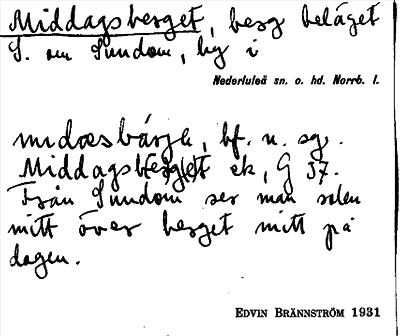 Middagsberget, berg beläget
S. om Sundom, by i
Nederluleå sn. o. hd. Norrb. l.
bf. n. sg.
Middagsberget ek, G 37.
Från Sundom ser man solen
mitt över berget mitt på
dagen.
EDVIN BRÄNNSTRÖM 1931